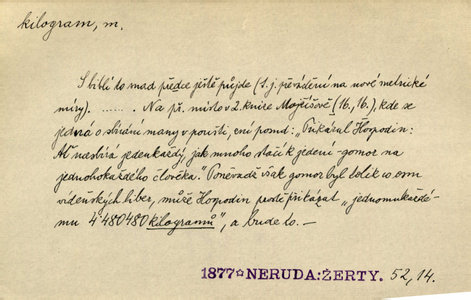 kilogram, m.
S biblí to snad předce ještě půjde (t. j. převádění na nové metrické
míry). ....... Na př. místo v 2. knize Mojžíšově (16, 16.), kde se
jedná o sbírání many v poušti, zní posud: „Přikázal Hospodin:
Ať nasbírá jedenkaždý, jak mnoho stačí k jedení - gomor na
jednohokaždého člověka." Poněvadž však gomor byl tolik co osm
vídeňských liber, může Hospodin prostě přikázat „jednomukaždé-
mu 4·480480 kilogramů", a bude to. —
1877☆NERUDA: ŽERTY. 52, 14.